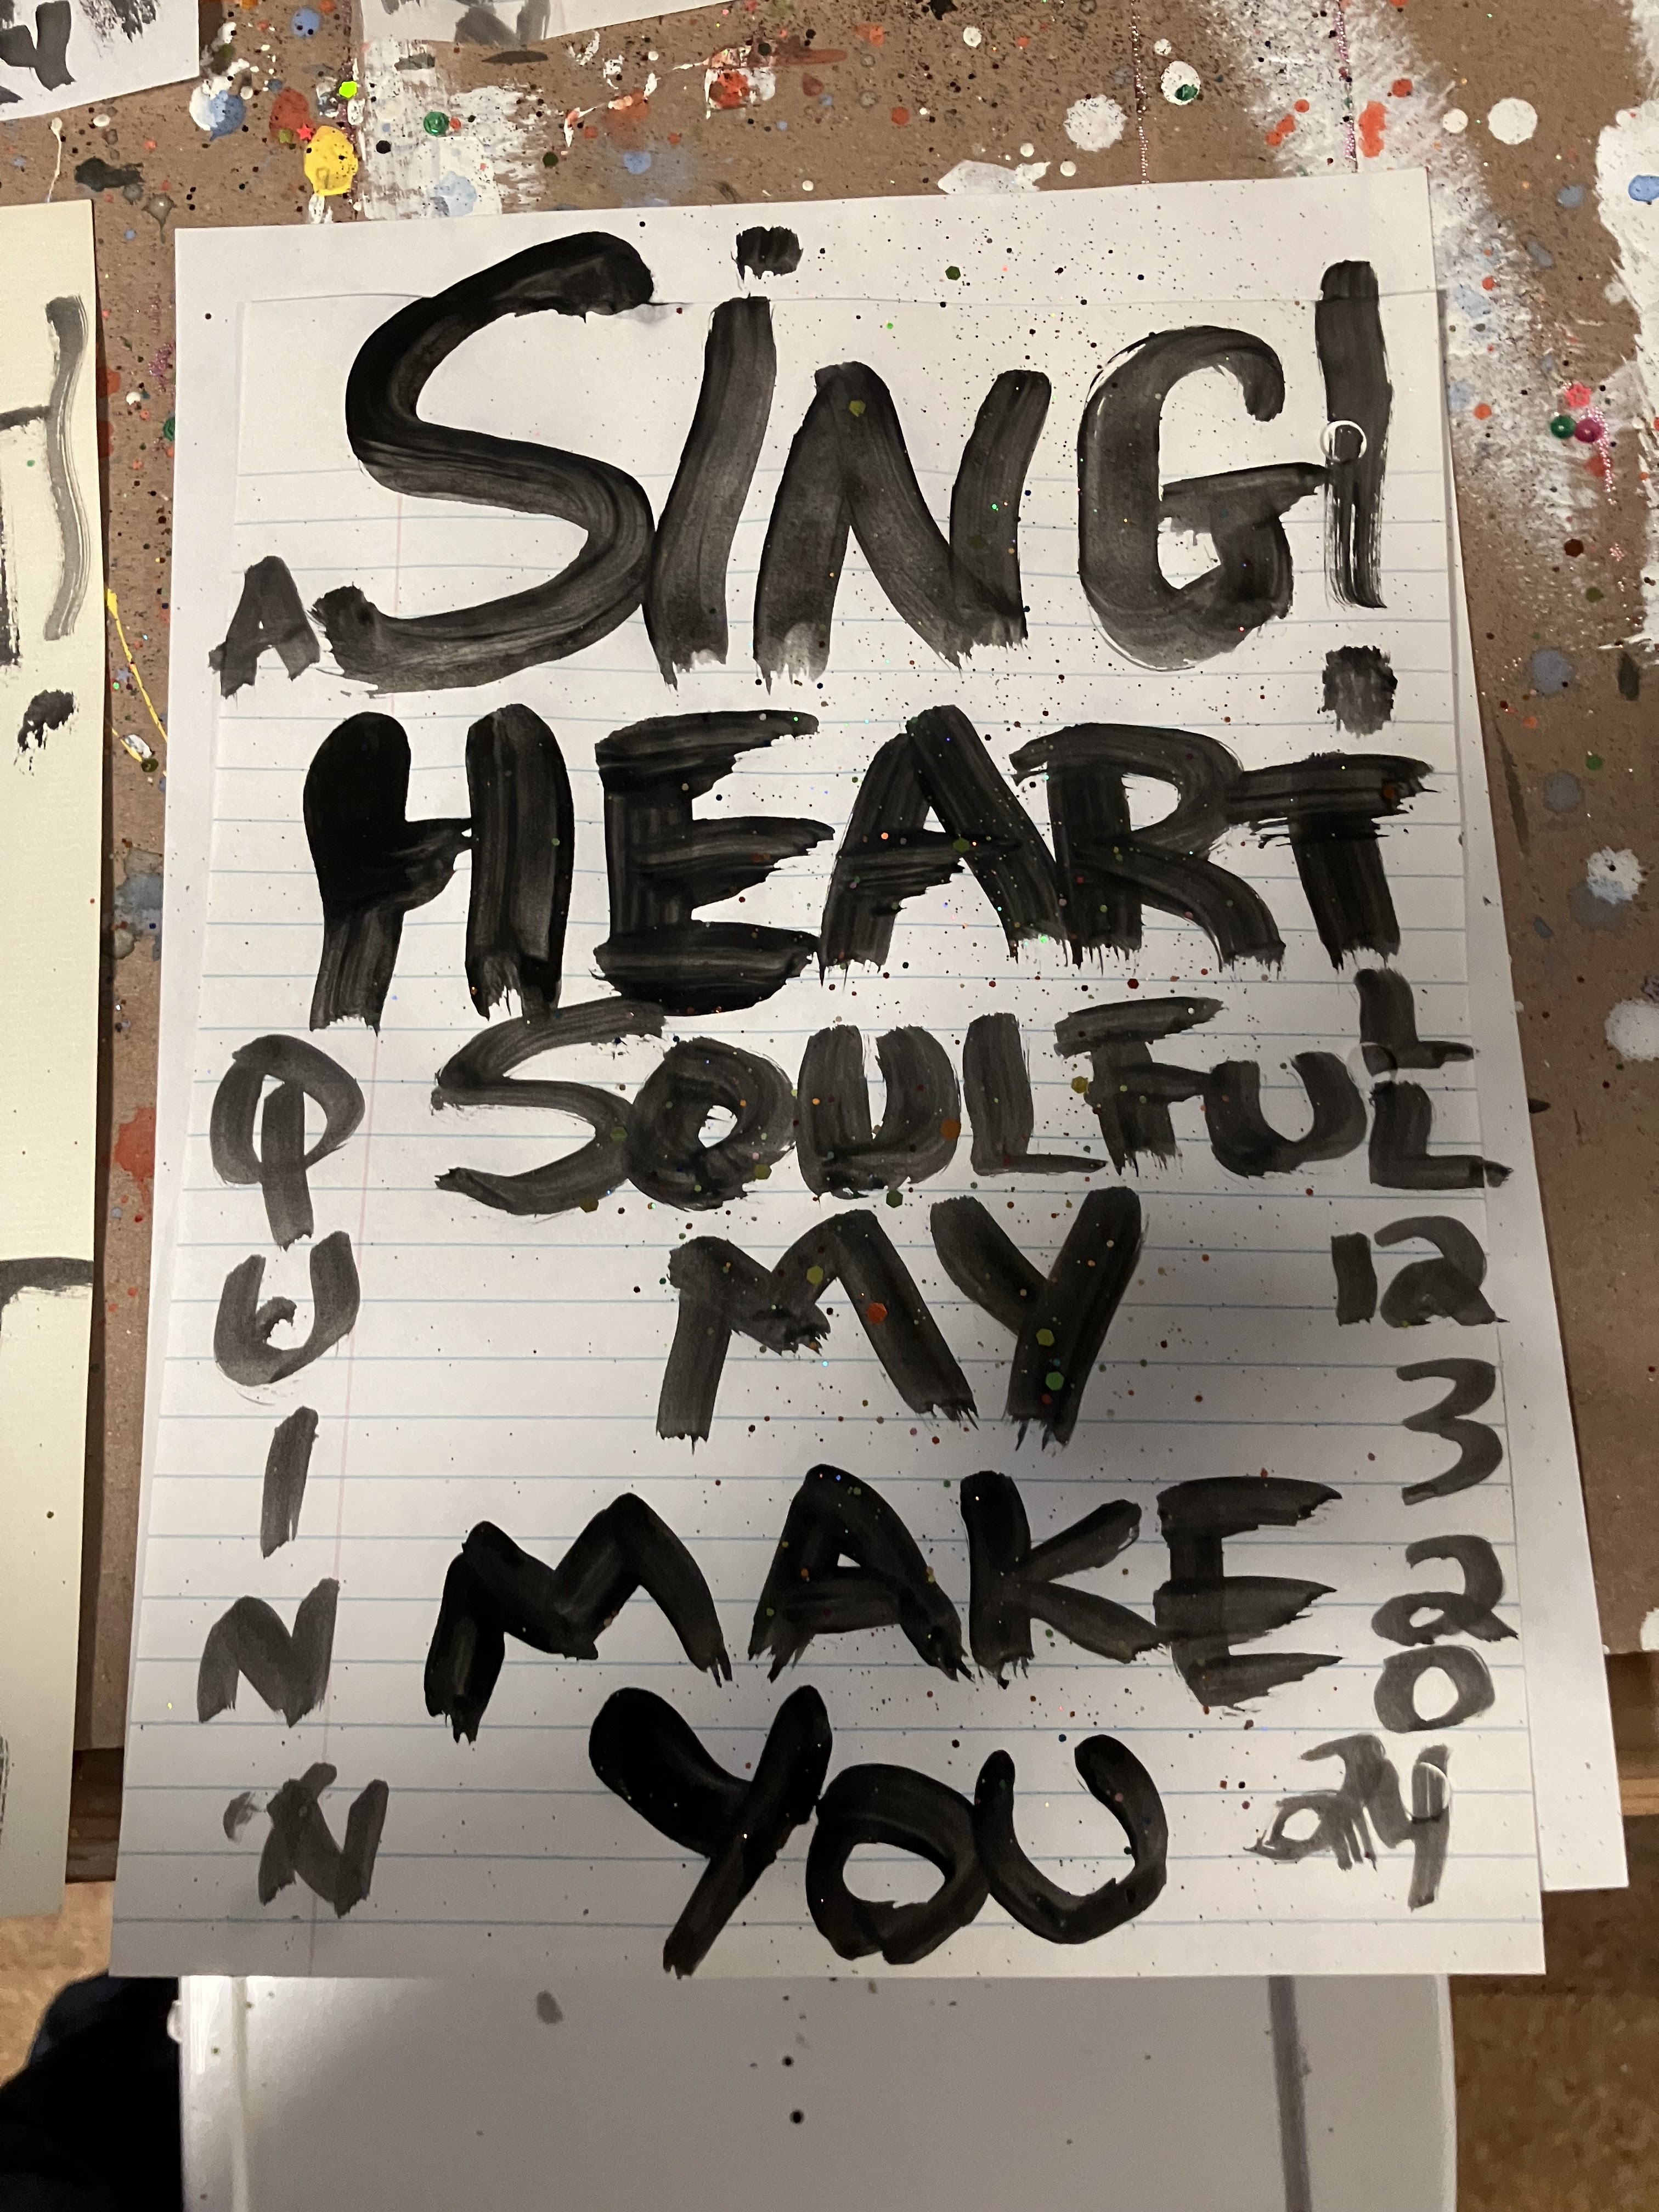 SiNG!
A
HEART
SOULFULL
MY
MAKE
YOU
QUINN
12
3
20
24